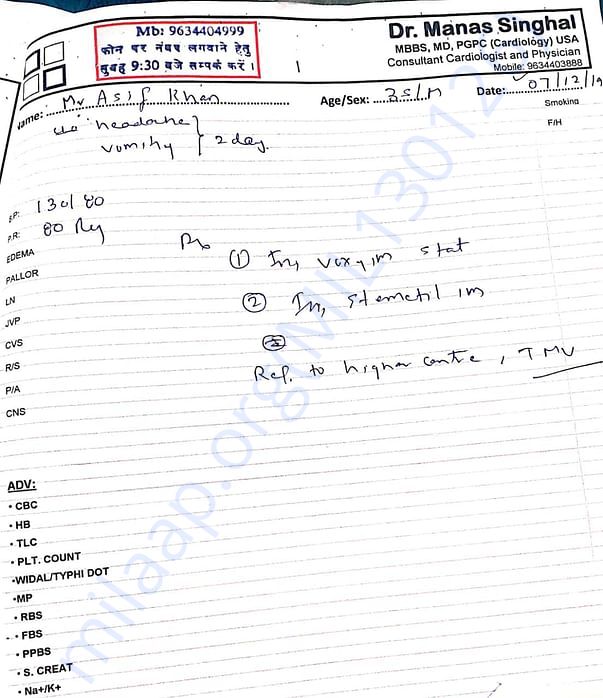 Mb: 9634404999
फोन पर नंबर लगवाने हेतु
सुबह 9:30 बजे सम्पर्क करें।
Dr. Manas Singhal
MBBS, MD, PGPC (Cardiology) USA
Consultant Cardiologist and Physician
Mobile: 9634403888
Name: Mr Asif Khan Age/Sex: 35/M Date: 07/12/19
Smoking
F/H
headache
vomiting 2 day.
BP: 130/80
P.R: 80 Reg
EDEMA
PALLOR
LN
JVP
CVS
R/S
P/A
CNS
Rx
① Inj stat
② Inj stemetil im
Ref. to higher centre, TMU
ADV:
• CBC
• HB
• TLC
• PLT. COUNT
•WIDAL/TYPHI DOT
•MP
• RBS
• FBS
• PPBS
• S. CREAT
• Na+/K+
milaap.org/MIL13012